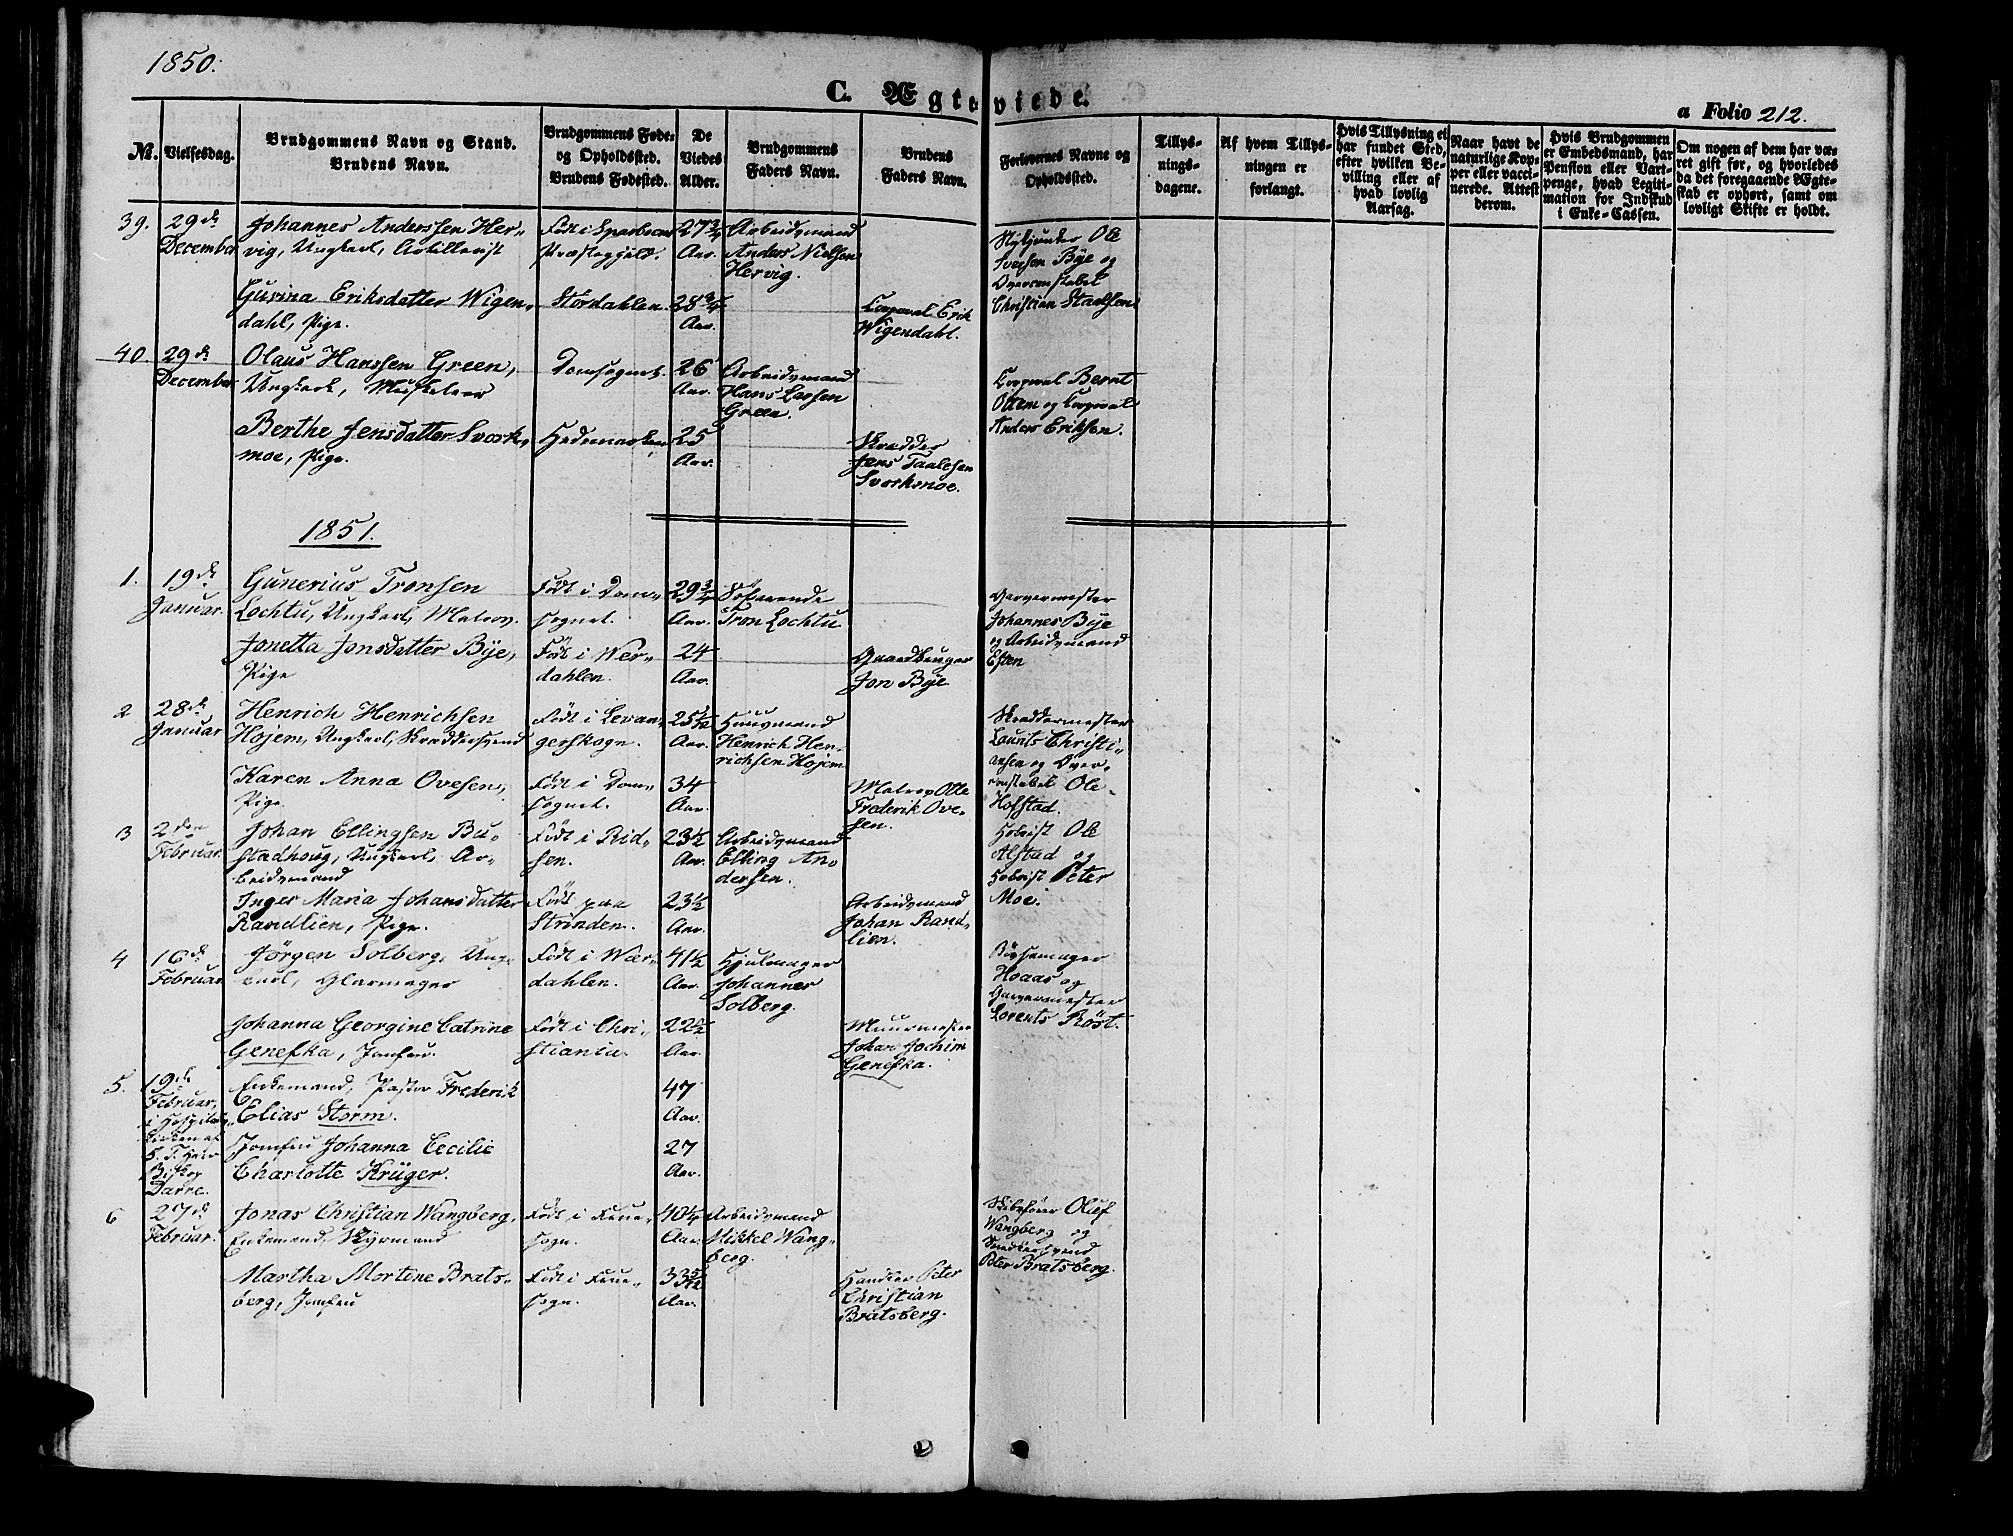 1850.
C. Ægteviede.
a Folio 212.
No. Vielsesdag.
Brudgommens Navn og Stand.
Brudens Navn.
Brudgommens Føde-
og Opholdssted.
Brudens Fødested.
De
Viedes
Alder.
Brudgommens
Faders Navn.
Brudens
Faders Navn.
Forlovernes Navne og
Opholdssted.
Tillys-
nings-
dagene.
Af hvem Tillys-
ningen er
forlangt.
Hvis Tillysning ei
har fundet Sted,
efter hvilken Be-
villing eller af
hvad lovlig
Aarsag.
Naar havt de
naturlige Kop-
per eller vacci-
nerede. Attest
derom.
Hvis Brudgommen
er Embedsmand, har
Pension eller Vart-
penge, hvad Legiti-
mation for Indskud
i Enke-Cassen.
Om nogen af dem har væ-
ret gift før, og hvorledes
da det foregaaende Ægte-
skab er ophørt, samt om
lovligt Skifte er holdt.
39. 29de
December
Johannes Anderssen Her-
vig, Ungkarl, Artillerist
Født i Sparboens
Præstegjeld.
27 3/4
Aar.
Arbeidsmand
Anders Nielsen
Hervig.
Ole
Svensen Bye og
Overconstabel
Christian Staalsen
Gurina Eriksdatter Wigen-
dahl, Pige.
Størdahlen.
28 3/4
Aar.
Corporal Erik
Wigendahl.
40. 29de
December
Olaus Hanssen Green,
Ungkarl, Musketeer
Domsognet.
26
Aar.
Arbeidsmand
Hans Larsen
Green.
Corporal Bernt
Ottem og Corporal
Anders Eriksen.
Berthe Jensdatter Svork-
moe, Pige.
Hedemarken
25
Aar.
Skrædder
Jens Taalesen
Svorkmoe.
1851.
1. 19de
Januar.
Gunerius Tronsen
Lochtu, Ungkarl, Matros.
Født i Dom-
sognet.
29 3/4
Aar.
Søfarende
Tron Lochtu
Garvermester
Johannes Bye
og Arbeidsmand
Esten
Jonetta Jonsdatter Bye,
Pige
Født i Wer-
dahlen.
24
Aar.
Gaardbruger
Jon Bye
2 28de
Januar
Henrich Henrichsen
Hojem, Ungkarl, Skræddersvend
Født i Levan-
gerskogn.
25 5/12
Aar.
Huusmand
Henrich Hen-
richsen Hojem
Skræddermester
Laurits Christi-
ansen og Over-
constabel Ole
Hofstad.
Karen Anna Ovesen,
Pige
Født i Dom-
sognet.
34
Aar.
Matros Olle
Frederik Ove-
sen.
3 2den
Februar
Johan Ellingsen Bu-
stadhoug, Ungkarl, Ar-
beidsmand
Født i Rid-
sen.
23 1/2
Aar.
Arbeidsmand
Elling An-
dersen.
Hoboist Ole
Alstad og
Hoboist Peter
Moe.
Inger Maria Johansdatter
Randlien, Pige.
Født paa
Strinden.
23 1/2
Aar.
Arbeidsmand
Johan Rand-
lien.
4 16de
Februar
Jörgen Solberg, Ung-
karl, Glarmager
Født i Wær-
dahlen.
41 1/2
Aar.
Hjulmager
Johannes
Solberg.
Bøssemager
Hoaas og
Garvermester
Lorents Röst.
Johanna Georgine Catrine
Genefka, Jomfru.
Født i Chri-
stiania.
22 1/2
Aar.
Muurmester
Johan Jochim
Genefka.
5. 19de
Februar,
i Hospitals-
kirken af
S. T. Herr
Biskop
Darre.
Enkemand, Pastor Frederik
Elias Storm.
47
Aar.
Jomfru Johanna Cecilie
Charlotte Krüger.
27
Aar.
6 27de
Februar.
Jonas Christian Wangberg,
Enkemand, Styrmand
Født i Frue-
sogn.
40 1/4
Aar.
Arbeidsmand
Mikkel Wang-
berg.
Skibsfører Oluf
Wangberg og
Snedkersvend
Peter Bratsberg.
Martha Mortene Brats-
berg, Jomfru
Født i Frue-
sogn.
33 5/12
Aar.
Handler Peter
Christian
Bratsberg.